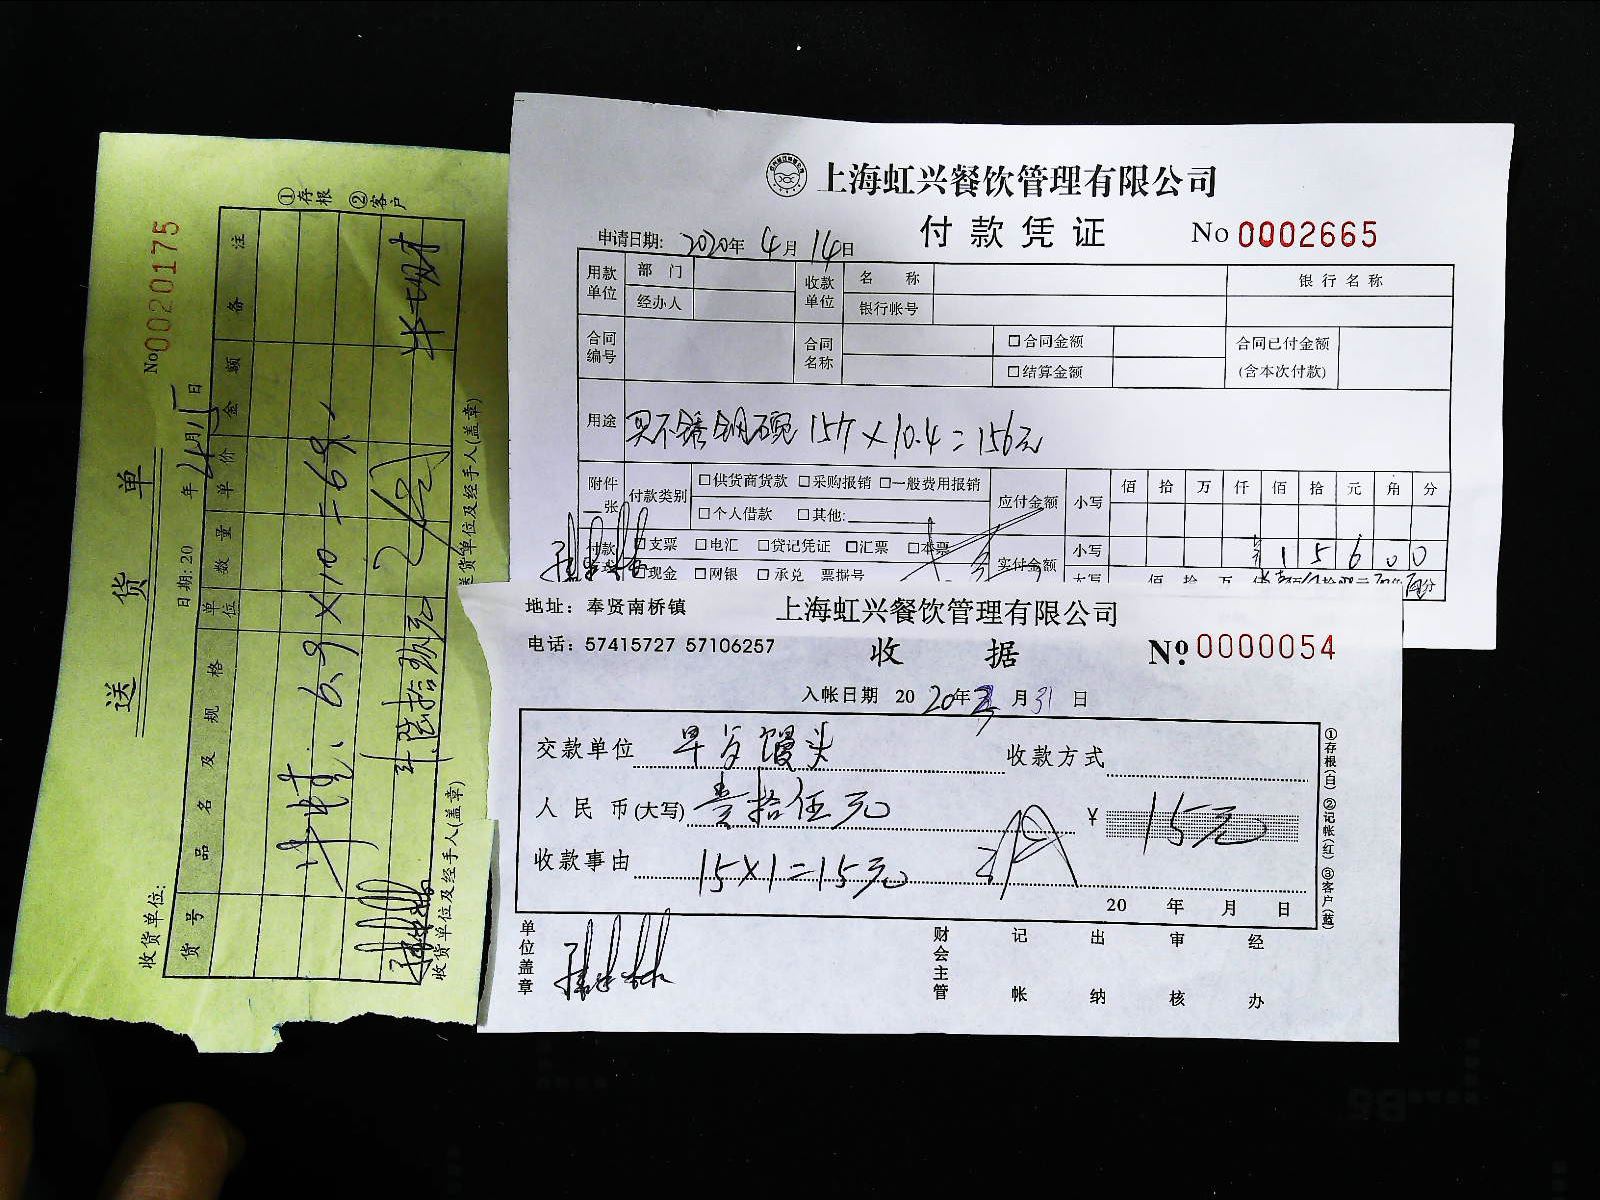 送货单
No 0020175
日期: 20 年 4月15日
收货单位:
货号 品名及规格 单位 数量 单价 金额 备注
6.9×10=69
计陆拾玖元
收货单位及经手人(盖章)
送货单位及经手人(盖章)
①存根 ②客户
上海虹兴餐饮管理有限公司
付款凭证
No 0002665
申请日期: 2020年4月14日
用款单位 部门 收款单位 名称 银行名称
经办人 银行帐号
合同编号 合同名称 □合同金额 合同已付金额
□结算金额 (含本次付款)
用途 买不锈钢碗 15个×10.4=156元
附件 张 付款类别 □供货商货款 □采购报销 □一般费用报销 应付金额 小写 佰 拾 万 仟 佰 拾 元 角 分
□个人借款 □其他:
付款 □支票 □电汇 □贷记凭证 □汇票 □本票 实付金额 小写 1 5 6 0 0
□现金 □网银 □承兑 票据号 大写 佰 拾 万
地址：奉贤南桥镇
上海虹兴餐饮管理有限公司
电话：57415727 57106257
收据
No. 0000054
入帐日期 2020年3月31日
交款单位 早餐馒头 收款方式
人民币(大写) 壹拾伍元 ¥ 15元
收款事由 15×1=15元
20 年 月 日
单位盖章 财会主管 记帐 出纳 审核 经办
①存根(白) ②记帐(红) ③客户(蓝)